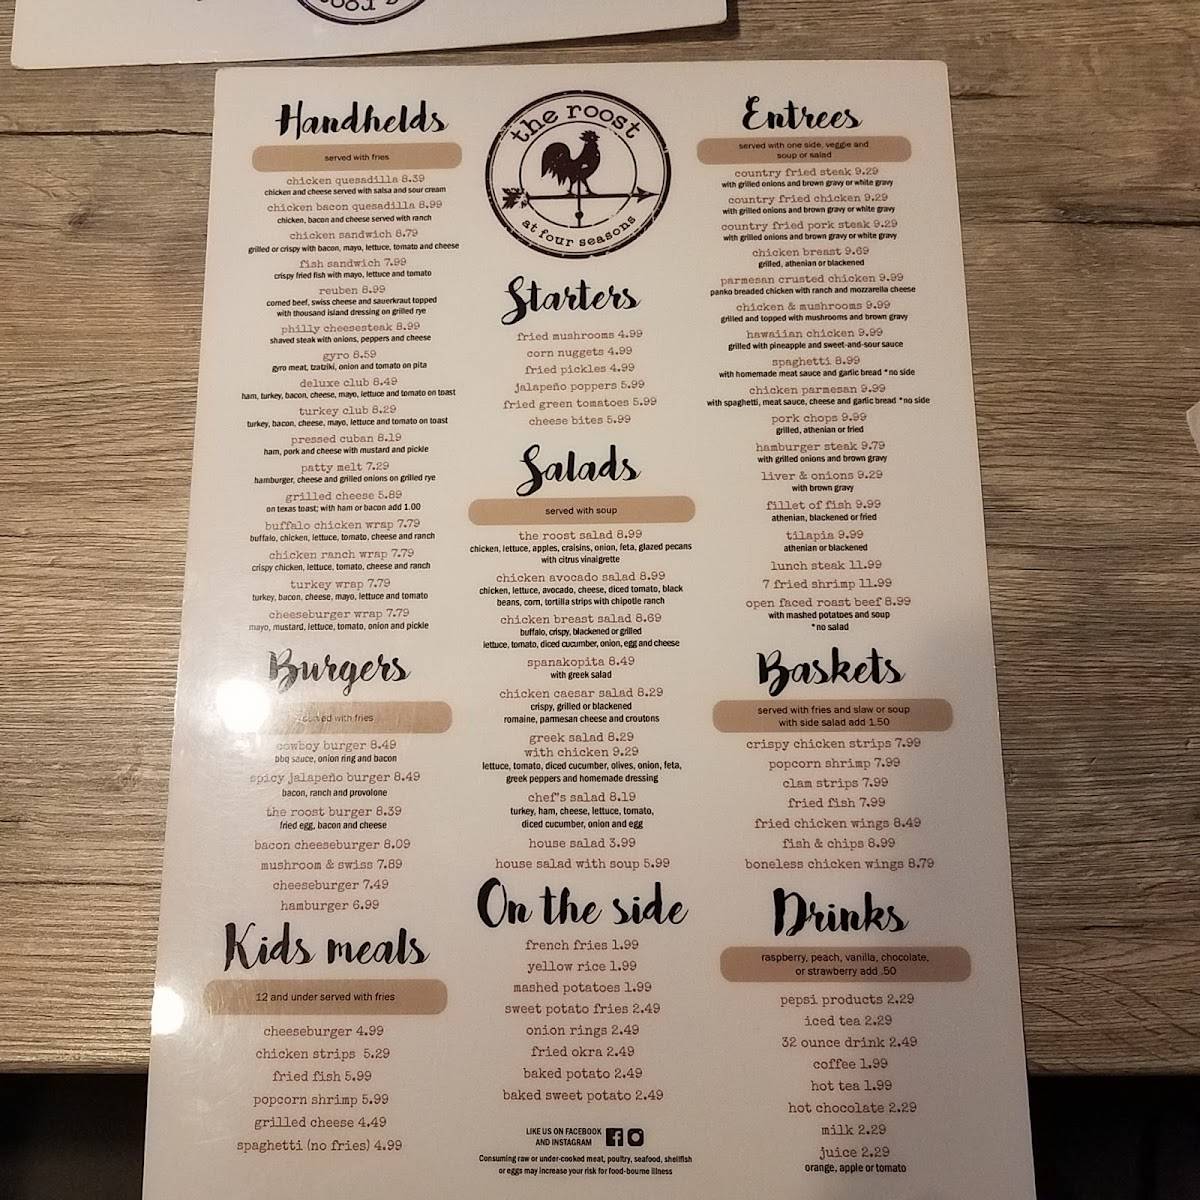 Handhelds
served with fries
chicken quesadilla 8.39
chicken and cheese served with salsa and sour cream
chicken bacon quesadilla 8.99
chicken, bacon and cheese served with ranch
chicken sandwich 8.79
grilled or crispy with bacon, mayo, lettuce, tomato and cheese
fish sandwich 7.99
crispy fried fish with mayo, lettuce and tomato
reuben 8.99
corned beef, swiss cheese and sauerkraut topped
with thousand island dressing on grilled rye
philly cheesesteak 8.99
shaved steak with onions, peppers and cheese
gyro 8.59
gyro meat, tzatziki, onion and tomato on pita
deluxe club 8.49
ham, turkey, bacon, cheese, mayo, lettuce and tomato on toast
turkey club 8.29
turkey, bacon, cheese, mayo, lettuce and tomato on toast
pressed cuban 8.19
ham, pork and cheese with mustard and pickle
patty melt 7.29
hamburger, cheese and grilled onions on grilled rye
grilled cheese 5.89
on texas toast; with ham or bacon add 1.00
buffalo chicken wrap 7.79
buffalo, chicken, lettuce, tomato, cheese and ranch
chicken ranch wrap 7.79
crispy chicken, lettuce, tomato, cheese and ranch
turkey wrap 7.79
turkey, bacon, cheese, mayo, lettuce and tomato
cheeseburger wrap 7.79
mayo, mustard, lettuce, tomato, onion and pickle
Burgers
served with fries
cowboy burger 8.49
bbq sauce, onion ring and bacon
spicy jalapeño burger 8.49
bacon, ranch and provolone
the roost burger 8.39
fried egg, bacon and cheese
bacon cheeseburger 8.09
mushroom & swiss 7.89
cheeseburger 7.49
hamburger 6.99
Kids meals
12 and under served with fries
cheeseburger 4.99
chicken strips 5.29
fried fish 5.99
popcorn shrimp 5.99
grilled cheese 4.49
spaghetti (no fries) 4.99
the roost
at four seasons
Starters
fried mushrooms 4.99
corn nuggets 4.99
fried pickles 4.99
jalapeño poppers 5.99
fried green tomatoes 5.99
cheese bites 5.99
Salads
served with soup
the roost salad 8.99
chicken, lettuce, apples, craisins, onion, feta, glazed pecans
with citrus vinaigrette
chicken avocado salad 8.99
chicken, lettuce, avocado, cheese, diced tomato, black
beans, corn, tortilla strips with chipotle ranch
chicken breast salad 8.69
buffalo, crispy, blackened or grilled
lettuce, tomato, diced cucumber, onion, egg and cheese
spanakopita 8.49
with greek salad
chicken caesar salad 8.29
crispy, grilled or blackened
romaine, parmesan cheese and croutons
greek salad 8.29
with chicken 9.29
lettuce, tomato, diced cucumber, olives, onion, feta,
greek peppers and homemade dressing
chef's salad 8.19
turkey, ham, cheese, lettuce, tomato,
diced cucumber, onion and egg
house salad 3.99
house salad with soup 5.99
On the side
french fries 1.99
yellow rice 1.99
mashed potatoes 1.99
sweet potato fries 2.49
onion rings 2.49
fried okra 2.49
baked potato 2.49
baked sweet potato 2.49
LIKE US ON FACEBOOK
AND INSTAGRAM
Consuming raw or under-cooked meat, poultry, seafood, shellfish
or eggs may increase your risk for food-bourne illness
Entrees
served with one side, veggie and
soup or salad
country fried steak 9.29
with grilled onions and brown gravy or white gravy
country fried chicken 9.29
with grilled onions and brown gravy or white gravy
country fried pork steak 9.29
with grilled onions and brown gravy or white gravy
chicken breast 9.69
grilled, athenian or blackened
parmesan crusted chicken 9.99
panko breaded chicken with ranch and mozzarella cheese
chicken & mushrooms 9.99
grilled and topped with mushrooms and brown gravy
hawaiian chicken 9.99
grilled with pineapple and sweet-and-sour sauce
spaghetti 8.99
with homemade meat sauce and garlic bread *no side
chicken parmesan 9.99
with spaghetti, meat sauce, cheese and garlic bread *no side
pork chops 9.99
grilled, athenian or fried
hamburger steak 9.79
with grilled onions and brown gravy
liver & onions 9.29
with brown gravy
fillet of fish 9.99
athenian, blackened or fried
tilapia 9.99
athenian or blackened
lunch steak 11.99
7 fried shrimp 11.99
open faced roast beef 8.99
with mashed potatoes and soup
*no salad
Baskets
served with fries and slaw or soup
with side salad add 1.50
crispy chicken strips 7.99
popcorn shrimp 7.99
clam strips 7.99
fried fish 7.99
fried chicken wings 8.49
fish & chips 8.99
boneless chicken wings 8.79
Drinks
raspberry, peach, vanilla, chocolate,
or strawberry add .50
pepsi products 2.29
iced tea 2.29
32 ounce drink 2.49
coffee 1.99
hot tea 1.99
hot chocolate 2.29
milk 2.29
juice 2.29
orange, apple or tomato